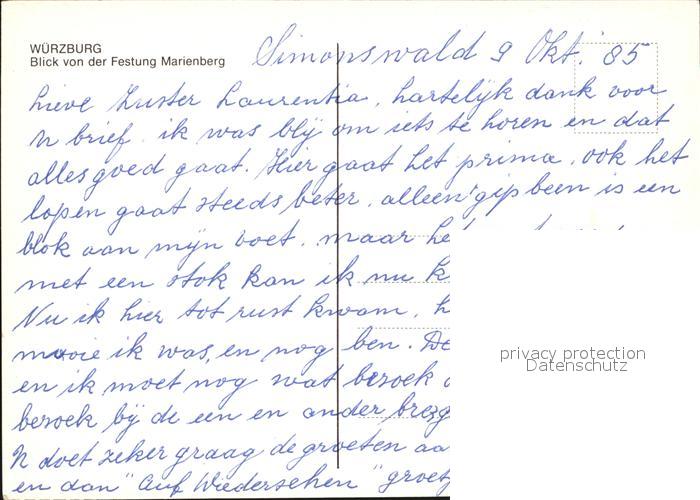 WÜRZBURG
Blick von der Festung Marienberg
Simonswald 9 Okt. 85
Lieve Zuster Laurentia, hartelijk dank voor
'n brief. ik was blij om iets te horen en dat
alles goed gaat. Hier gaat het prima, ook het
lopen gaat steeds beter, alleen 'gipbeen is een
blok aan mijn voet. maar
met een stok kan ik nu k
Nu ik hier tot rust kwam, h
mooie ik was, en nog ben. De
en ik moet nog wat bezoek
bezoek bij de een en ander
'n doet zeker graag de groeten aa
en dan "Auf Wiedersehen" groetj
privacy protection
Datenschutz